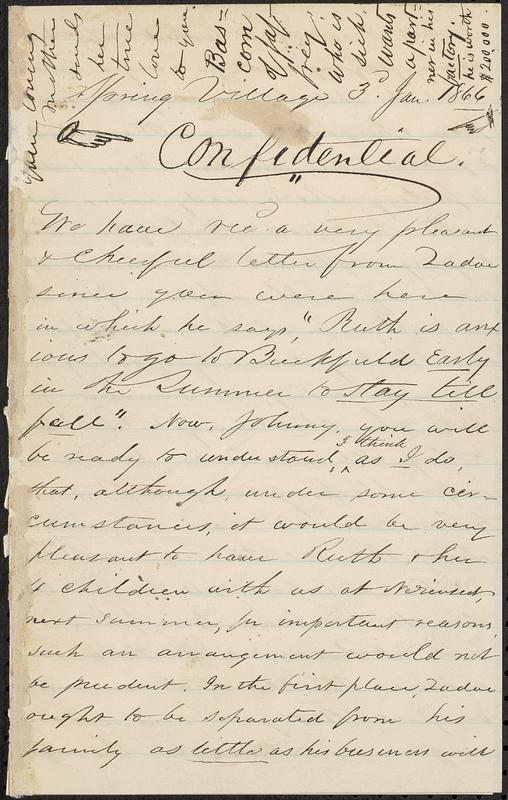 your loving
mother
sends
her
true
love
to you.
Bas=
com
of Jaf=
frey
who is
sick
wants
a part=
ner in his
factory.
he is worth
$200,000.
Spring Village 3d. Jan. 1866
Confidential.
We have rec'd. a very pleasant
& cheerful letter from Zadoc
since you were here
in which he says, "Ruth is anx
ious to go to Buckfield early
in the Summer to stay till
fall". Now, Johnny, you will
be ready to understand, I think as I do,
that, although, under some cir=
cumstances, it would be very
pleasant to have Ruth & her
4 children with us at
next summer, for important reasons,
such an arrangement would not
be prudent. In the first place, Zadoc
ought to be separated from his
family as little as his business will